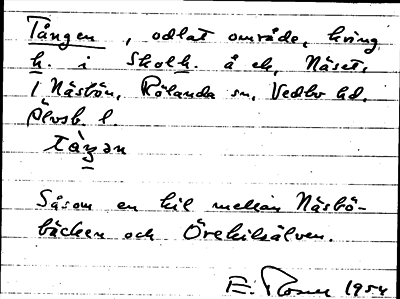 Tången, odlat område, kring
h. i Skolh. å ek. Näset,
1 Näsbön, Rölanda sn, Vedbo hd.
Älvsb. l.
tàŋən
Såsom en kil mellan Näsbö-
bäcken och Örekilsälven.
E. Rosell 1954